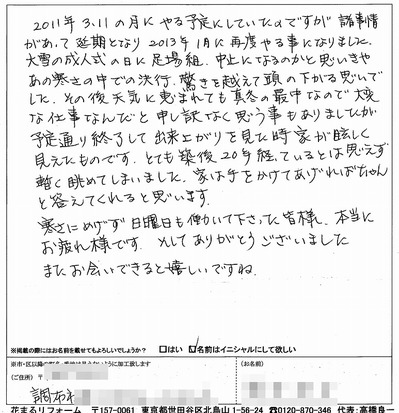 2011年3.11の月にやる予定にしていたのですが 諸事情
があって延期となり 2013年1月に再度やる事になりました。
大雪の成人式の日に足場組。中止になるのかと思いきや
あの寒さの中での決行。驚きを越えて頭の下がる思いで
した。その後天気に恵まれても真冬の最中なので大変
な仕事なんだと申し訳なく思う事もありましたが
予定通り終了して出来上がりを見た時家が眩しく
見えたものです。とても築後20年経っているとは思えず
暫く眺めてしまいました。家は手をかけてあげればちゃん
と答えてくれると思います。
寒さにめげず日曜日も働いて下さった皆様、本当に
お疲れ様です。そしてありがとうございました
またお会いできると嬉しいですね。
※掲載の際にはお名前を載せてもよろしいでしょうか? □はい ☑名前はイニシャルにして欲しい
※市・区以降の
加工致します
(ご住所) 〒
(お名前)
調布市
花まるリフォーム 〒157-0061 東京都世田谷区北烏山1-56-24 ☎0120-870-346 代表:高橋良一